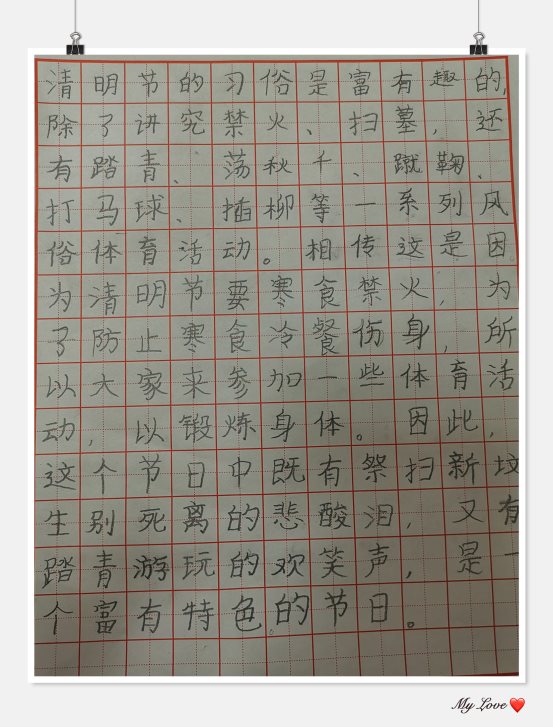 清明节的习俗是富有趣的,
除了讲究禁火、扫墓,还
有踏青、荡秋千、蹴鞠、
打马球、插柳等一系列风
俗体育活动。相传这是因
为清明节要寒食禁火,为
了防止寒食冷餐伤身,所
以大家来参加一些体育活
动,以锻炼身体。因此,
这个节日中既有祭扫新坟
生别死离的悲酸泪,又有
踏青游玩的欢笑声,是一
个富有特色的节日。
My Love ❤️